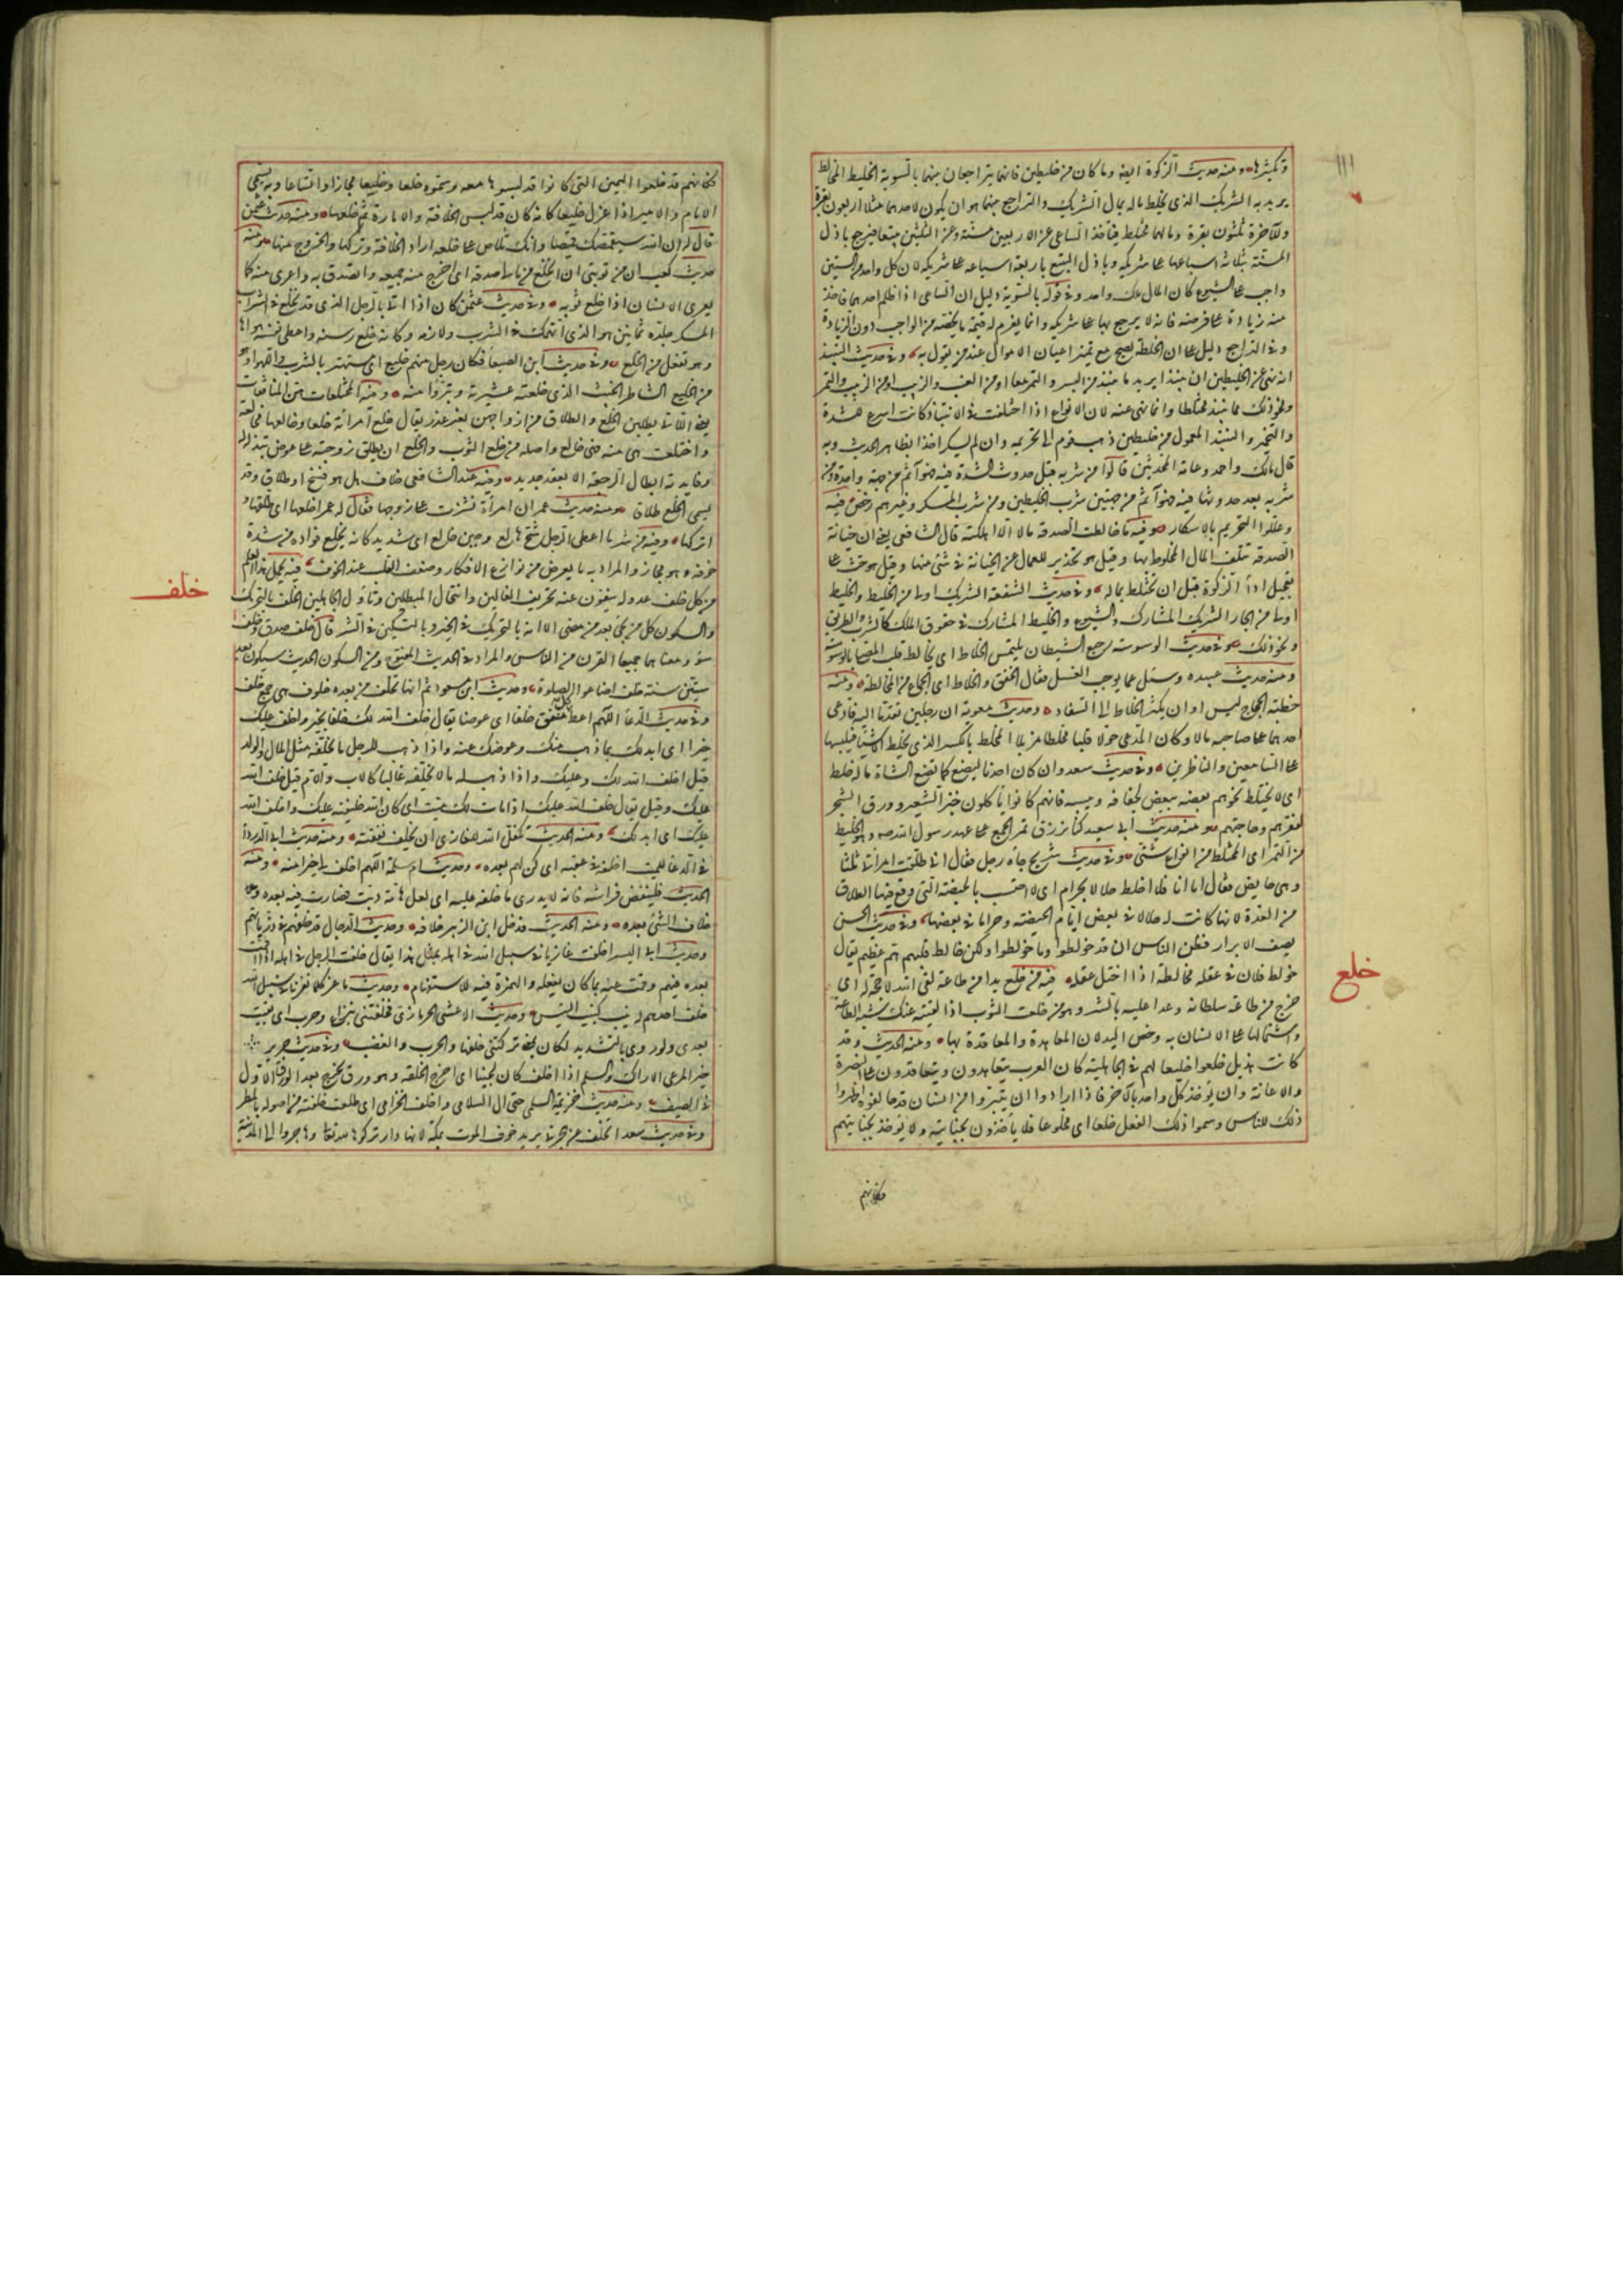 وتكثيرها ومنه حديث الزكوة ايضا وما كان من خليطين فانهما يتراجعان بينهما بالسوية الخليط المخالط
يريد به الشريك الذي يخلط ماله بمال الشريك والتراجع بينهما هو ان يكون لاحدهما مثلا اربعون بقرة
وللآخر ثلثون بقرة ومالهما مختلط فيأخذ الساعي عن الاربعين مسنة وعن الثلثين تبيعا فيرجع باذل
المسنة بثلاثة اسباعها على شريكه وباذل التبيع باربعة اسباعه على شريكه لان كل واحد من السنين
واجب على الشيوع كان المال ملك واحد وفي قوله بالسوية دليل ان الساعي اذا ظلم احدهما فاخذ
منه زيادة على فرضه فانه لا يرجع بها على شريكه وانما يغرم له قيمة ما يخصه من الواجب دون الزيادة
وفي التراجع دليل على ان الخلطة تصح مع تميز اعيان الاموال عند من يقول به وفي حديث النبيذ
انه نهى عن الخليطين ان ينبذا يريد ما ينبذ من البسر والتمر معا او من العنب والزبيب او من الزبيب والتمر
ونحو ذلك مما ينبذ مختلطا وانما نهى عنه لان الانواع اذا اختلفت في الانتباذ كانت اسرع للشدة
والتخمر والنبيذ المعمول من خليطين ذهب قوم الى تحريمه وان لم يسكر اخذا بظاهر الحديث وبه
قال مالك واحمد وعامة المحدثين قالوا من شربه قبل حدوث الشدة فيه فهو آثم من جهة واحدة ومن
شربه بعد حدوثها فيه فهو آثم من جهتين شرب الخليطين ومن شرب المسكر وغيرهم رخص فيه
وعللوا التحريم بالاسكار وفيه ما خالطت الصدقة مالا الا اهلكته قال الشافعي يعني ان خيانة
الصدقة تتلف المال المخلوط بها وقيل هو تحذير للعمال عن الخيانة في شئ منها وقيل هو حث على
تعجيل اداء الزكوة قبل ان تختلط بماله وفي حديث الشفعة الشريك اولى من الخليط والخليط
اولى من الجار الشريك المشارك في الشيوع والخليط المشارك في حقوق الملك كالشرب والطريق
ونحو ذلك وفي حديث الوسوسة رجع الشيطان يلتمس الخلاط اي يخالط قلب المصلي بالوسوسة
ومنه حديث عبيدة وسئل عما يوجب الغسل فقال الخفق والخلاط اي الجماع من المخالطة ومنه
خطبة الحجاج ليس اوان يكثر الخلاط الى السفاد وحديث معوية ان رجلين تقدما اليه فادعى
احدهما على صاحبه مالا وكان المدعى حولا قلبا مخلطا مزيلا المخلط بالكسر الذي يخلط الاشياء فيلبسها
على السامعين والناظرين وفي حديث سعد وان كان احدنا ليضع كما تضع الشاة ماله خلط
اي لا يختلط نجوهم بعضه ببعض لجفافه ويبسه فانهم كانوا يأكلون خبز الشعير وورق الشجر
لفقرهم وحاجتهم ومنه حديث ابي سعيد كنا نرزق تمر الجمع على عهد رسول الله صم وهو الخليط
من التمر اي المختلط من انواع شتى وفي حديث شريح جاءه رجل فقال اني طلقت امرأتي ثلثا
وهي حايض فقال اما انا فلا اخلط حلالا بحرام اي لا احتسب بالحيضة التي وقع فيها الطلاق
من العدة لانها كانت له حلالا في بعض ايام الحيضة وحراما في بعضها وفي حديث الحسن
يصف الابرار فظن الناس ان قد خولطوا وما خولطوا ولكن خالط قلبهم هم عظيم يقال
خولط فلان في عقله مخالطة اذا اختل عقله فيه من خلع يدا من طاعة لقي الله لا حجة له اي
خرج من طاعة سلطانه وعدا عليه بالشر وهو من خلعت الثوب اذا القيته عنك شبه الطاعة
واشتمالها على الانسان به وخص اليد لان المعاهدة والمعاقدة بها ومنه الحديث وقد
كانت هذيل خلعوا خليعا لهم في الجاهلية كان العرب يتعاهدون ويتعاقدون على النصرة
والاعانة وان يؤخذ كل واحد بالآخر فاذا ارادوا ان يتبرؤا من انسان قد حالفوه اظهروا
ذلك للناس وسموا ذلك الفعل خلعا اي مخلوعا فلا يأخذون بجنايته ولا يؤخذ بجنايتهم
فكانهم
خلع
١١١
فكانهم قد خلعوا اليمين التي كانوا قد لبسوها معه وسموه خلعا وخليعا مجازا واتساعا وبه يسمى
الامام والامير اذا عزل خليعا كانه كان قد لبس الخلافة والامارة ثم خلعها ومنه حديث عثمن
قال له ان الله سيقمصك قميصا وانك تلاص على خلعه اراد الخلافة وتركها والخروج منها ومنه
حديث كعب ان من توبتي ان انخلع من مالي صدقة اي اخرج منه جميعه واتصدق به واعرى منه كما
يعرى الانسان اذا خلع ثوبه وفي حديث عثمن كان اذا اتي بالرجل الذي قد تخلع في الشراب
المسكر جلده ثمانين هو الذي انهمك في الشرب ولازمه وكانه خلع رسنه واعطى نفسه هواها
وهو تفعل من الخلع وفي حديث ابن الصبغا فكان رجل منهم خليع اي مستهتر بالشرب واللهو او هو
من الخليع الشاطر الخبيث الذي خلعته عشيرته وتبرؤا منه ومنه المختلعات هن المنافقات
يعني اللاتي يطلبن الخلع والطلاق من ازواجهن بغير عذر يقال خلع امرأته خلعا وخالعها مخالعة
واختلعت هي منه فهي خالع واصله من خلع الثوب والخلع ان يطلق زوجته على عوض تبذله له
وفايدته ابطال الرجعة الا بعقد جديد وفيه عند الشافعي خلاف هل هو فسخ او طلاق وقد
يسمى الخلع طلاقا ومنه حديث عمر ان امرأة نشزت على زوجها فقال له عمر اخلعها اي طلقها و
اتركها وفيه من شر ما اعطي الرجل شح هالع وجبن خالع اي شديد كانه يخلع فؤاده من شدة
خوفه وهو مجاز والمراد به ما يعرض من نوازع الافكار وضعف القلب عند الخوف فيه يحمل هذا العلم
من كل خلف عدوله ينفون عنه تحريف الغالين وانتحال المبطلين وتأول الجاهلين الخلف بالتحريك
والسكون كل من يجئ بعد من مضى الا انه بالتحريك في الخير وبالتسكين في الشر يقال خلف صدق وخلف
سوء ومعناهما جميعا القرن من الناس والمراد في الحديث المفتوح ومن السكون الحديث سيكون بعد
ستين سنة خلف اضاعوا الصلوة وحديث ابن مسعود ثم انها تخلف من بعده خلوف هي جمع خلف
وفي حديث الدعا اللهم اعط كل منفق خلفا اي عوضا يقال خلف الله لك خلفا بخير واخلف عليك
خيرا اي ابدلك بما ذهب منك وعوضك عنه واذا ذهب للرجل ما يخلفه مثل المال والولد
قيل اخلف الله لك وعليك واذا ذهب له ما لا يخلفه غالبا كالاب والام قيل خلف الله
عليك وقيل يقال خلف الله عليك اذا مات لك ميت اي كان الله خليفته عليك واخلف الله
عليك اي ابدلك ومنه الحديث تكفل الله للغازي ان يخلف نفقته ومنه حديث ابي الدرداء
في الدعا للميت اخلفه في عقبه اي كن لهم بعده وحديث ام سلمة اللهم اخلف لي خيرا منه ومنه
الحديث فلينفض فراشه فانه لا يدري ما خلفه عليه اي لعل هامة دبت فصارت فيه بعده
خلاف الشئ بعده ومنه الحديث فدخل ابن الزبير خلافه وحديث الدجال قد خلفهم في ذرياتهم
وحديث ابي اليسر اخلفت غازيا في سبيل الله في اهله بمثل هذا يقال خلفت الرجل في اهله اذا اقمت
بعده فيهم وقمت عنه بما كان يفعله والهمزة فيه للاستفهام وحديث ماعز كلما نفرنا في سبيل الله
خلف احدهم له نبيب كنبيب التيس وحديث الاعشى الحرمازي فخلفتني بنزاع وحرب اي بقيت
بعدي ولو روي بالتشديد لكان بمعنى تركتني خلفها والحرب والغضب وفي حديث جرير
خير المرعى الاراك والسلم اذا اخلف كان لجينا اي اخرج الخلفة وهو ورق يخرج بعد الورق الاول
في الصيف ومنه حديث خزيمة السلمي حتى آل السلامى واخلف الخزامى اي طلعت خلفته من اصوله بالمطر
وفي حديث سعد اتخلف عن هجرتي يريد خوف الموت بمكة لانها دار تركوها لله تعالى وهاجروا الى المدينة
خلف